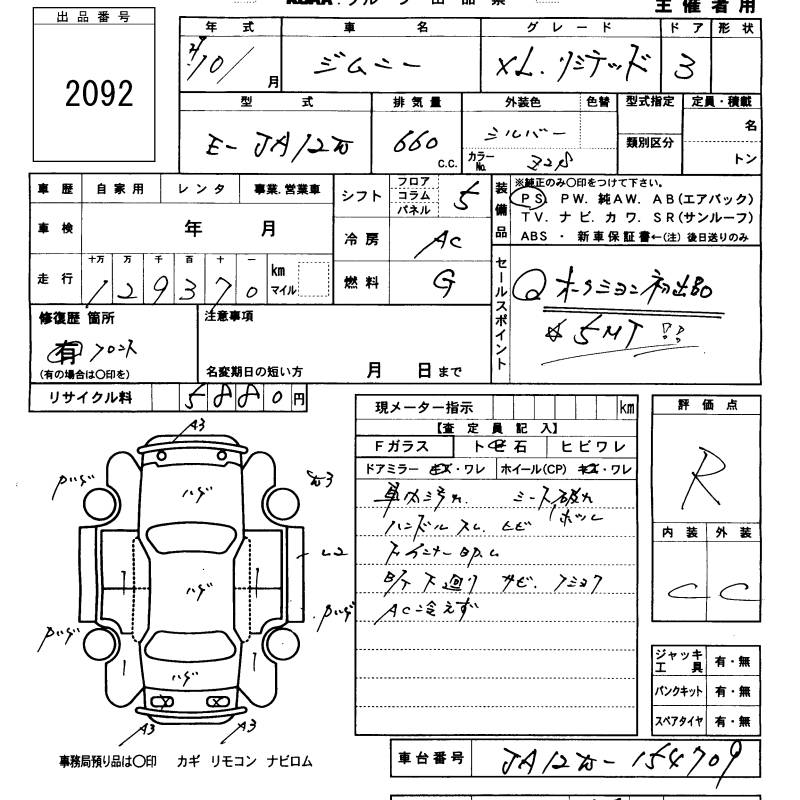 出品番号
2092
主催者用
年式 車名 グレード ドア 形状
10/ 月 ジムニー XL.リミテッド 3
型式 排気量 外装色 色替 型式指定 定員・積載
E-JA12W 660 c.c. シルバー 類別区分 名
カラーNo. Z2S トン
車歴 自家用 レンタ 事業.営業車 シフト フロア コラム パネル 5
車検 年 月 冷房 AC
走行 十万 万 千 百 十 一 km マイル 燃料 G
129370
装備品 ※純正のみ〇印をつけて下さい。
PS. PW. 純AW. AB(エアバック)
TV. ナビ. カワ. SR(サンルーフ)
ABS ・ 新車保証書←(注) 後日送りのみ
セールスポイント
オークション初出品
☆5MT!!
修復歴 箇所 注意事項
有 フロント
(有の場合は〇印を) 名変期日の短い方 月 日まで
リサイクル料 5880円
現メーター指示 km
【査定員記入】
Fガラス ト石 ヒビワレ
ドアミラー キズ・ワレ ホイール(CP) キズ・ワレ
車内汚れ シート破れ
ハンドルスレ ヒビ
下廻り サビ
AC冷えず
評価点
R
内装 外装
C C
ジャッキ工具 有・無
パンクキット 有・無
スペアタイヤ 有・無
A3
ハゲ
ハゲ
ハゲ
A3 A3
事務局預り品は〇印 カギ リモコン ナビロム
車台番号 JA12W-154709